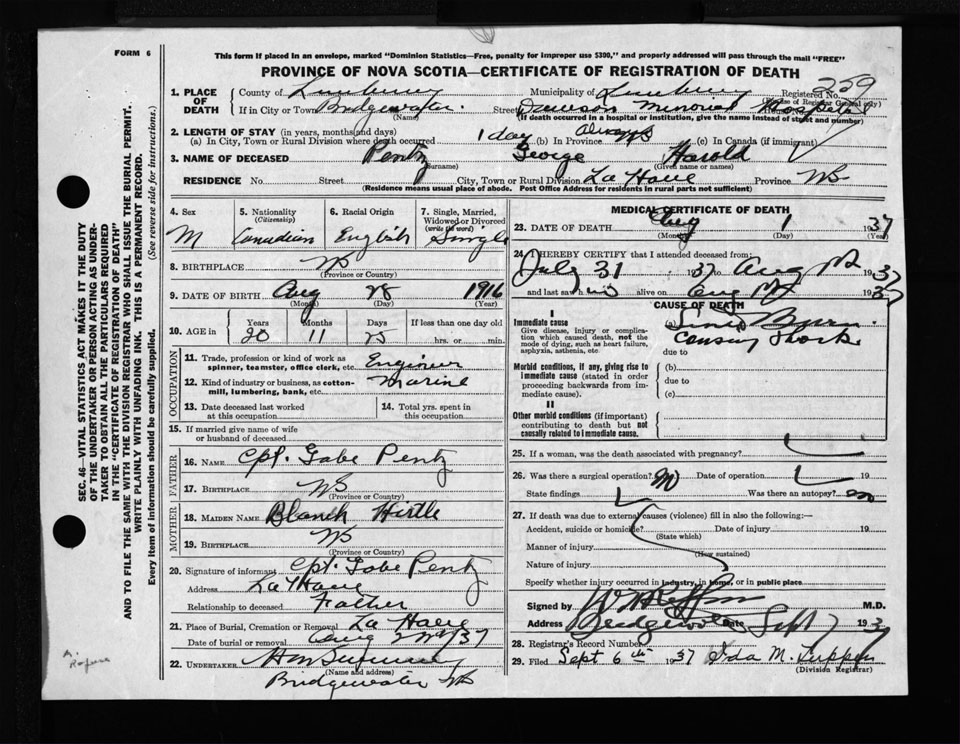 FORM 6
This form if placed in an envelope, marked "Dominion Statistics—Free, penalty for improper use $300," and properly addressed will pass through the mail "FREE"
PROVINCE OF NOVA SCOTIA—CERTIFICATE OF REGISTRATION OF DEATH
259
1. PLACE OF DEATH County of Lunenburg Municipality of Lunenburg Registered No.
(For use of Registrar General only)
If in City or Town Bridgewater. Street Dawson Memorial Hospital
(Name) (If death occurred in a hospital or institution, give the name instead of street and number)
2. LENGTH OF STAY (in years, months and days)
(a) In City, Town or Rural Division where death occurred 1 day (b) In Province Always (c) In Canada (if immigrant)
3. NAME OF DECEASED Pentz George Harold
(Surname) (Given name or names)
RESIDENCE No. Street City, Town or Rural Division La Have Province NS
(Residence means usual place of abode. Post Office Address for residents in rural parts not sufficient)
4. Sex M
5. Nationality (Citizenship) Canadian
6. Racial Origin English
7. Single, Married, Widowed or Divorced (write the word) Single
8. BIRTHPLACE NS
(Province or Country)
9. DATE OF BIRTH Aug 28 1916
(Month) (Day) (Year)
10. AGE in Years Months Days If less than one day old
20 11 25 hrs. or min.
OCCUPATION
11. Trade, profession or kind of work as spinner, teamster, office clerk, etc. Enginer
12. Kind of industry or business, as cotton-mill, lumbering, bank, etc. Marine
13. Date deceased last worked at this occupation
14. Total yrs. spent in this occupation
15. If married give name of wife or husband of deceased
FATHER
16. NAME Cpt. Gabe Pentz
17. BIRTHPLACE NS
(Province or Country)
MOTHER
18. MAIDEN NAME Blanch Hirtle
19. BIRTHPLACE NS
(Province or Country)
20. Signature of informant Cpt. Gabe Pentz
Address La Have
Relationship to deceased Father
21. Place of Burial, Cremation or Removal La Have
Date of burial or removal Aug 2nd/37
22. UNDERTAKER
(Name and address)
Bridgewater NS
MEDICAL CERTIFICATE OF DEATH
23. DATE OF DEATH Aug 1 1937
(Month) (Day) (Year)
24. I HEREBY CERTIFY that I attended deceased from:
July 31 1937 to Aug 1937
and last saw him alive on Aug 1937
CAUSE OF DEATH
I
Immediate cause
Give disease, injury or complication which caused death, not the mode of dying, such as heart failure, asphyxia, asthenia, etc
(a) Burn
Shock
due to
Morbid conditions, if any, giving rise to immediate cause (stated in order proceeding backwards from immediate cause).
(b)
due to
(c)
II
Other morbid conditions (if important) contributing to death but not causally related to immediate cause.
25. If a woman, was the death associated with pregnancy?
26. Was there a surgical operation? Date of operation 19
State findings Was there an autopsy? no
27. If death was due to external causes (violence) fill in also the following:—
Accident, suicide or homicide? Date of injury 19
(State which)
Manner of injury
(How sustained)
Nature of injury
Specify whether injury occurred in industry, in home, or in public place
Signed by M.D.
Address Bridgewater Date Sept 7 1937
28. Registrar's Record Number
29. Filed Sept 6th 1937 Ida M.
(Division Registrar)
SEC. 46—VITAL STATISTICS ACT MAKES IT THE DUTY
OF THE UNDERTAKER OR PERSON ACTING AS UNDER-
TAKER TO OBTAIN ALL THE PARTICULARS REQUIRED
IN THE "CERTIFICATE OF REGISTRATION OF DEATH"
AND TO FILE THE SAME WITH THE DIVISION REGISTRAR WHO SHALL ISSUE THE BURIAL PERMIT.
WRITE PLAINLY WITH UNFADING INK. THIS IS A PERMANENT RECORD.
Every item of information should be carefully supplied. (See reverse side for instructions.)